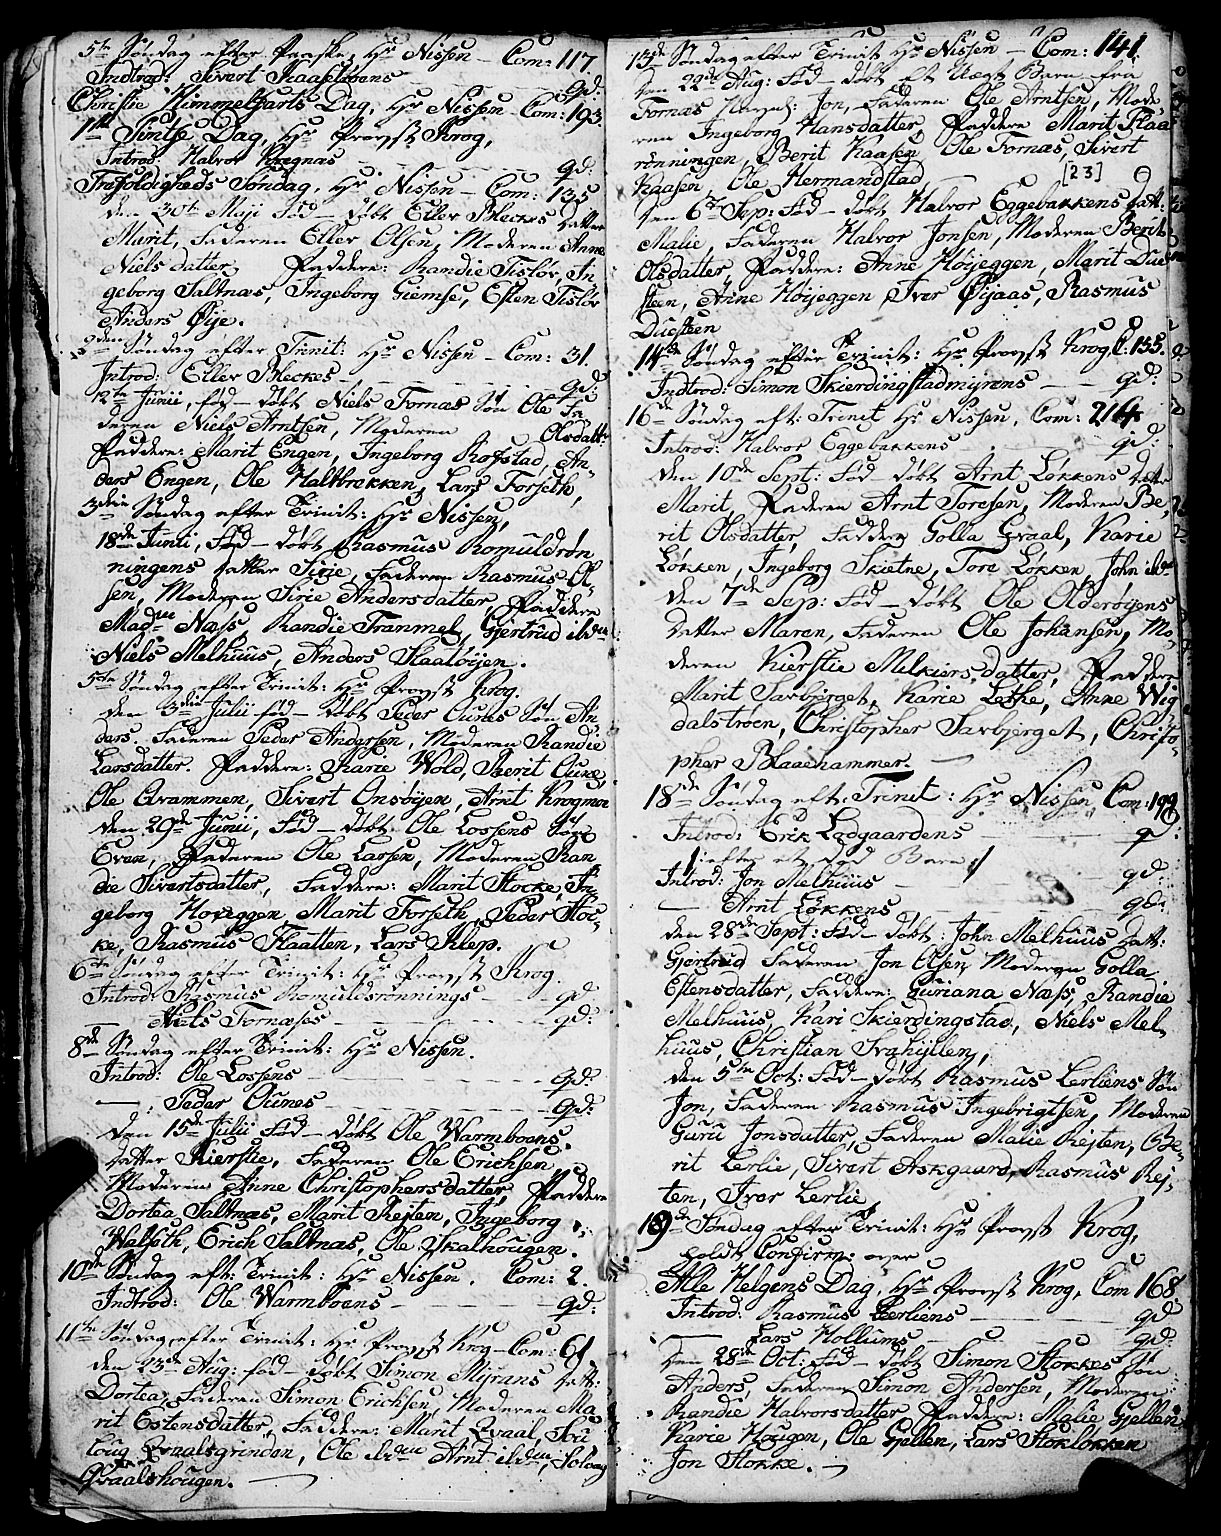 5te Søndag efter Paaske, Hr Nissen – Com: 117
Indtrod: Sivert Kaasløbens — qd:
Christie Himmelfarts Dag, Hr Nissen – Com: 193.
1te Pintse Dag, Hr Provst Krog,
Introd: Halvor Krognæs — qd:
Trefoldigheds Søndag, Hr Nissen – Com: 135
den 30te Maji Fød – døbt Eller Bleckes datter
Marit, Faderen Eller Olsen, Moderen Anne
Niels datter, Faddere: Randie Tisløv, In
geborg Saltnæs, Ingeborg Giemse, Esten Tisløv
Anders Øije.
2den Søndag efter Trinit: Hr Nissen – Com: 31.
Introd: Eller Bleckes — qd:
12te Junii, fød – døbt Niels Fornæs Søn Ole Fa
deren Niels Arntsen, Moderen Olsdatt:
Faddere: Marit Engen, Ingeborg Rofstad, An-
ders Engen, Ole Haltbrekken, Lars Forseth,
3die Søndag efter Trinit: Hr Nissen,
18de Junii, Fød – døbt Rasmus Romuldrøn
ningens datter Sirie, Faderen Rasmus Ol
sen, Moderen Sirie Andersdatter, Faddere
Madme Næss, Randie Tranmel, Gjertrud ibdm
Niels Melhuus, Anders Kaaløijen.
5te Søndag efter Trinit: Hr Provst Krog.
den 3die Julii fød – døbt Peder Ounes Søn An
ders. Faderen Peder Andersen, Moderen Randie
Larsdatter. Faddere: Karie Wold, Berit Oune
Ole Qvammen, Sivert Onsøyen, Arnt Krogmoe
den 29de Junii, Fød – døbt Ole Lossens Søn
Even, Faderen Ole Larsen, Moderen Ran
die Sivertsdatter, Faddere: Marit Stocke, In
geborg Hoveggen, Marit Forseth, Peder Stoc-
ke, Rasmus Flaatten, Lars Klep.
6te Søndag efter Trinit: Hr Provst Krog
Introd: Rasmus Romuldsrønnings — qd
— Niels Fornæses — qd:
8de Søndag efter Trinit: Hr Nissen.
Introd: Ole Lossens — qd:
— : Peder Ounes — qd:
den 15de Julii Fød – døbt Ole Warmboens
datter Kierstie, Faderen Ole Erichsen
Moderen Anne Christophersdatter, Faddere
Dortea Saltnæs, Marit Rejten, Ingeborg
Walseth, Erich Saltnæs, Ole Skalhougen.
10de Søndag eft: Trinit: Hr Nissen, Com: 2.
Indtrod: Ole Warmboens — qd:
11te Søndag efter Trinit: Hr Provst Krog – Com: 61
den 23de Aug: fød – døbt Simon Myrans datt:
Dortea, Faderen Simon Erichsen, Moderen Ma
rit Estensdatter, Faddere: Marit Qvaal, Gu
loug Qvaalsgrinden, Ole ibdm Arnt ibdm, Solvaag
Qvaalshougen. —
13de Søndag efter Trinit Hr Nissen – Com: 141
den 22de Aug: Fød – døbt Et Uægt Barn fra
Fornæs Hagen: Jon, Faderen Ole Arntsen, Mode-
ren Ingeborg Hansdatter, Faddere Marit Flaa
rønningen, Berit Kaasen, Ole Fornæs, Sivert
Kaasen, Ole Hermandstad [23]
den 6te Sep: Fød – døbt Halvor Eggebakkens datt.
Malie, Faderen Halvor Jonsen, Moderen Berit
Olsdatter, Faddere: Anne Høyeggen, Marit Due
steen, Anne Høijeggen, Iver Øijaas, Rasmus
Duesteen
14de Søndag efter Trinit: Hr Provst Krog, C: 135.
Indtrod: Simon Skierdingstadmyrens — qd:
16de Søndag eft: Trinit Hr Nissen. Com: 214
Introd: Halvor Eggebakkens — qd:
den 10de Sept: Fød – døbt Arnt Løkkens datter
Marit, Faderen Arnt Toresen, Moderen Be-
rit Olsdatter, Faddere Golla Graal, Karie
Løkken, Ingeborg Skietne, Tore Løkken, John ibdm
den 7de Sep: Fød – døbt Ole Olderøijens
datter Maren, Faderen Ole Johansen, Mo-
deren Kierstie Melkiersdatter, Faddere
Marit Sarbjørget, Karie Lethe, Anne Wig
dalstroen, Christopher Sarbjørget, Christo-
pher Blaaehammer. —
18de Søndag eft: Trinit: Hr Nissen Com: 199
Introd: Erik Ladgaardens — q:
/: efter et død Barn :/
Introd: Jon Melhuus — qd:
— Arnt Løkkens — qd:
den 28de Sept: Fød – døbt: John Melhuus datt:
Gjertrud Faderen Jon Olsen, Moderen Golla
Estensdatter, Faddere: Guriana Næss, Randie
Melhuus, Kari Skierdingstad, Niels Mel-
huus, Christian Trahyllen,
den 5te Oct: Fød – døbt Rasmus Lerliens Søn
Jon, Faderen Rasmus Ingebrigtsen, Moderen
Guru Jonsdatter, Faderen Malie Rejten, Be-
rit Lerlie, Sivert Askgaard, Rasmus Rej-
ten, Iver Lerlie
19de Søndag efter Trinit: Hr Provst Krog,
holdt Confirm: over
Alle Helgens Dag, Hr Provst Krog, Com 168
Introd: Rasmus Lerliens — qd
— Lars Hollums — qd:
den 28de Oct: Fød – døbt Simon Stokkes Søn
Anders, Faderen Simon Andersen, Moderen
Randie Halvorsdatter Faddere: Malie Gjellen
Karie Hougen, Ole Gjellen, Lars Stokløkken
Jon Stokke. —